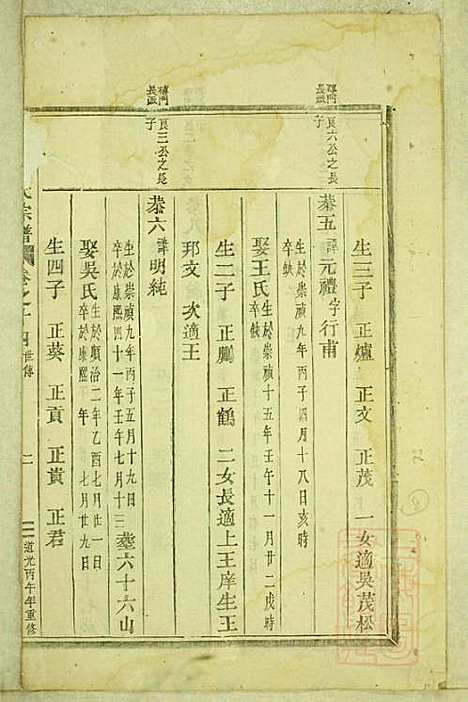 生三子 正爐 正文 正茂 一女適吳茂松
磚門
長派
良六公之長子
恭五 諱元禮 字行甫
生於崇禎九年丙子四月十八日亥時
卒缺
娶王氏 生於崇禎十五年壬午十一月廿二戌時
卒缺
生二子 正鵬 正鶴 二女長適上王庠生王
邦文 次適王
磚門
長派
良三公之長子
恭六 諱明純
生於崇禎九年丙子五月十九日
卒於康熙四十一年壬午七月十三
葬六十六山
娶吳氏 生於順治二年乙酉七月廿一日
卒於康熙 年 七月廿九日
生四子 正葵 正貢 正貴 正君
宗譜 卷之十四 世傳 二 道光丙午年重修